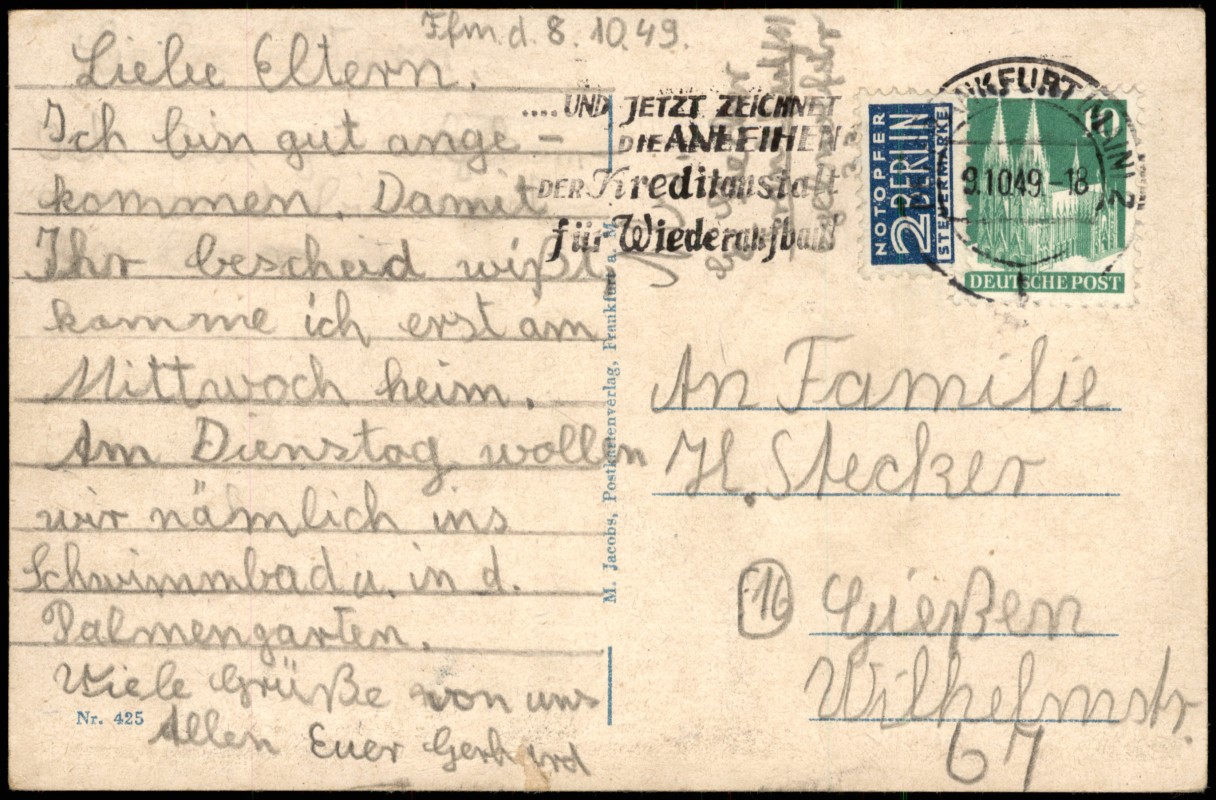 Ffm.d. 8.10.49.
Liebe Eltern.
Ich bin gut ange-
kommen. Damit
Ihr bescheid wißt
komme ich erst am
Mittwoch heim.
Am Dienstag wollen
wir nämlich ins
Schwimmbad u. in d.
Palmengarten.
Viele Grüße von uns
Allen Euer Gerhard
Nr. 425
M. Jacobs, Postkartenverlag, Frankfurt a. M.
....UND JETZT ZEICHNET
DIE ANLEIHEN
DER Kreditanstalt
für Wiederaufbau
NOTOPFER
2 BERLIN
STEUERMARKE
FRANKFURT (MAIN) 2
9.10.49.-18
10
DEUTSCHE POST
An Familie
H. Stecker
16 Gießen
Wilhelmstr.
67